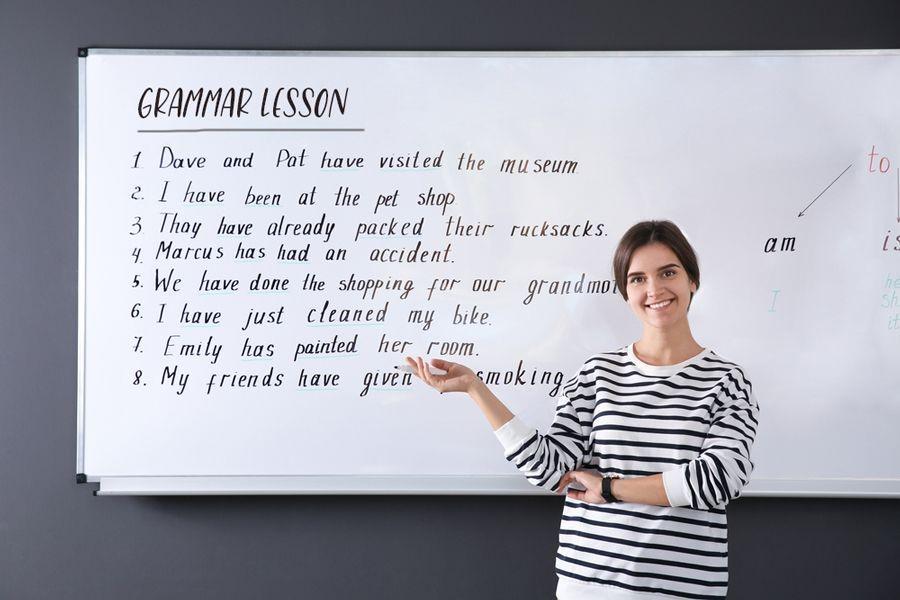 GRAMMAR LESSON
1. Dave and Pat have visited the museum.
2. I have been at the pet shop.
3. Thay have already packed their rucksacks.
4. Marcus has had an accident.
5. We have done the shopping for our
6. I have just cleaned my bike.
7. Emily has painted her room.
8. My friends have given smoking.
to
am
is
I